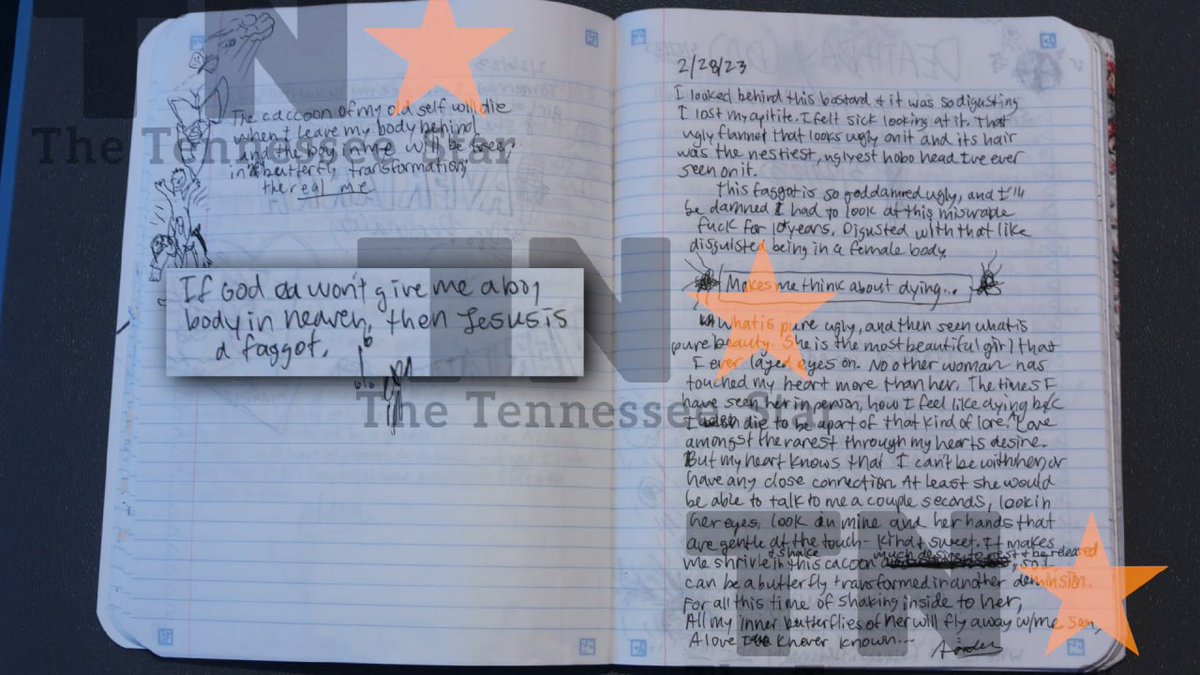 The caccoon of my old self will die
when I leave my body behind
and the boy in me will be free;
in a butterfly transformation;
the real me
If God won't give me a boy
body in heaven, then Jesus is
a faggot.
2/28/23
I looked behind this bastard & it was so disgusting
I lost my apitite. I felt sick looking at it. That
ugly flannel that looks ugly on it and its hair
was the nestiest, uglyest hobo head I've ever
seen on it.
This faggot is so goddamned ugly, and I'll
be damned I had to look at this misurable
fuck for 10+ years. Disgusted with that like
disguisted being in a female body.
Makes me think about dying...
What is pure ugly, and then seen what is
pure beauty. She is the most beautiful girl that
I ever layed eyes on. No other woman has
touched my heart more than her. The times I
have seen her in person, how I feel like dying b/c
I die to be apart of that kind of love. Love
amongst the rarest through my hearts desire.
But my heart knows that I can't be with her or
have any close connection. At least she would
be able to talk to me a couple seconds, look in
her eyes, look in mine and her hands that
are gentle at the touch - kind & sweet. It makes
me shrivle & shake in this cacoon much desire to rest & be released, so I
can be a butterfly transformed in another deminsion.
For all this time of shaking inside to her,
All my inner butterflies of her will fly away w/me soon,
A love I knever known...
Aiden
TN
The Tennessee Star
TN
The Tennessee Star
TN